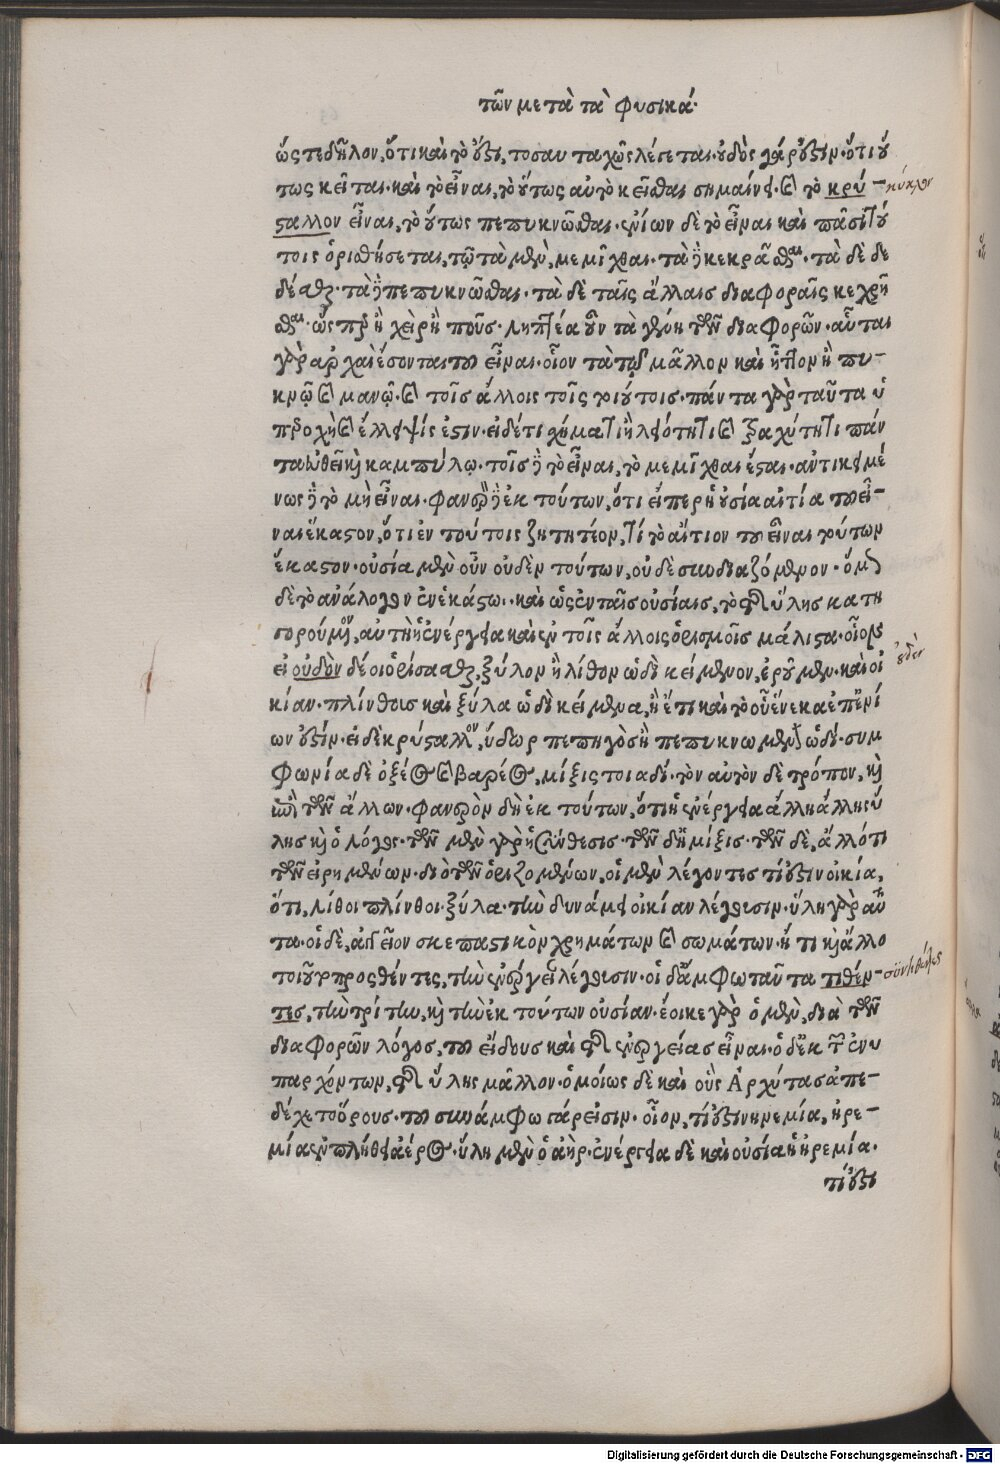 τῶν μετὰ τὰ φυσικά·
ὥς τε δῆλον, ὅτι καὶ τὸ ἔστι, τοσαυταχῶς λέγεται. οὐδὸς γάρ ἐστιν. ὅτι οὕ
τως κεῖται. καὶ τὸ εἶναι, τὸ οὕτως αὐτὸ κεῖσθαι σημαίνει. καὶ τὸ κρύ- κύκλον
σταλλον εἶναι, τὸ οὕτως πεπυκνῶσθαι. ἐνίων δὲ τὸ εἶναι καὶ πᾶσι τού
τοις ὁρισθήσεται, τῷ τὰ μὲν, μεμῖχθαι. τὰ δὲ κεκρᾶσθαι. τὰ δὲ δε
δέσθαι. τὰ δὲ πεπυκνῶσθαι. τὰ δὲ ταῖς ἄλλαις διαφοραῖς κεχρῆ
σθαι. ὥσπερ ἢ χὲρ ἢ ποῦς. ληπτέα οὖν τὰ γένη τῶν διαφορῶν. αὗται
γὰρ ἀρχαὶ ἔσονται τοῦ εἶναι. οἷον τὰ τῷ μᾶλλον καὶ ἧττον ἢ πυ-
κνῷ καὶ μανῷ. καὶ τοῖς ἄλλοις τοῖς τοιούτοις. πάντα γὰρ ταῦτα ὑ
προχὴ καὶ ἔλλειψίς ἐστιν. εἰ δέ τι σχήματι ἢ λειότητι καὶ τραχύτητι πάν
τα εὐθεῖ καὶ καμπύλῳ. τοῖς δὲ τὸ εἶναι, τὸ μεμῖχθαι ἔσται. ἀντικειμέ
νως δὲ τὸ μὴ εἶναι. φανερὸν δὲ ἐκ τούτων, ὅτι εἴπερ ἡ οὐσία αἰτία τοῦ εἶ-
ναι ἕκαστον, ὅτι ἐν τούτοις ζητητέον, τί τὸ αἴτιον τοῦ εἶναι τούτων
ἕκαστον. οὐσία μὲν οὖν οὐδὲν τούτων, οὐδὲ συνδυαζόμενον. ὅμως
δὲ τὸ ἀνάλογον ἐν ἑκάστῳ. καὶ ὡς ἐν ταῖς οὐσίαις, τὸ τῆς ὕλης κατη
γορούμενον, αὐτὴ ἡ ἐνέργεια καὶ ἐν τοῖς ἄλλοις ὁρισμοῖς μάλιστα. οἷον
εἰ οὐδὸν δέοι ὁρίσασθαι, ξύλον ἢ λίθον ὡδὶ κείμενον, ἐροῦμεν. καὶ οἰ οὐδὲν
κίαν. πλίνθοις καὶ ξύλα ὡδὶ κείμενα, ἢ ἔτι καὶ τὸ οὗ ἕνεκα ἐπ' ἐνί
ων ἐστίν. εἰ δὲ κρύσταλλον, ὕδωρ πεπηγὸς ἢ πεπυκνωμένον ὡδί. συμ
φωνία δὲ ὀξέος καὶ βαρέος, μίξις τοιαδί. τὸν αὐτὸν δὲ τρόπον, καὶ
ἐπὶ τῶν ἄλλων. φανερὸν δὴ ἐκ τούτων, ὅτι ἡ ἐνέργεια ἄλλη ἄλλης ὕ
λης καὶ ὁ λόγος. τῶν μὲν γὰρ ἡ σύνθεσις. τῶν δ' ἡ μίξις. τῶν δὲ, ἄλλό τι
τῶν εἰρημένων. διὸ τῶν ὁριζομένων, οἱ μὲν λέγοντες τί ἐστιν οἰκία,
ὅτι, λίθοι πλίνθοι ξύλα. τὴν δυνάμει οἰκίαν λέγουσιν. ὕλη γὰρ αὖ
τα. οἱ δὲ, ἀγγεῖον σκεπαστικὸν χρημάτων καὶ σωμάτων. ἤ τι καὶ ἄλλο
τοιοῦτον προσθέντες, τὴν ἐνεργείᾳ λέγουσιν. οἱ δ' ἄμφω ταῦτα τιθέν- συντιθέντες
τες, τὴν τρίτην, καὶ τὴν ἐκ τούτων οὐσίαν. ἔοικε γὰρ ὁ μὲν, διὰ τῶν
διαφορῶν λόγος, τοῦ εἴδους καὶ τῆς ἐνεργείας εἶναι. ὁ δ' ἐκ τῶν ἐνυ
παρχόντων, τῆς ὕλης μᾶλλον. ὁμοίως δὲ καὶ οὓς Ἀρχύτας ἀπε-
δέχετο ὅρους. τοῦ συνάμφω γάρ εἰσιν. οἷον, τί ἐστι νηνεμία, ἠρε-
μία ἐν πλήθει ἀέρος. ὕλη μὲν ὁ ἀὴρ. ἐνέργεια δὲ καὶ οὐσία ἡ ἠρεμία.
τί ἐστι
Digitalisierung gefördert durch die Deutsche Forschungsgemeinschaft - DFG